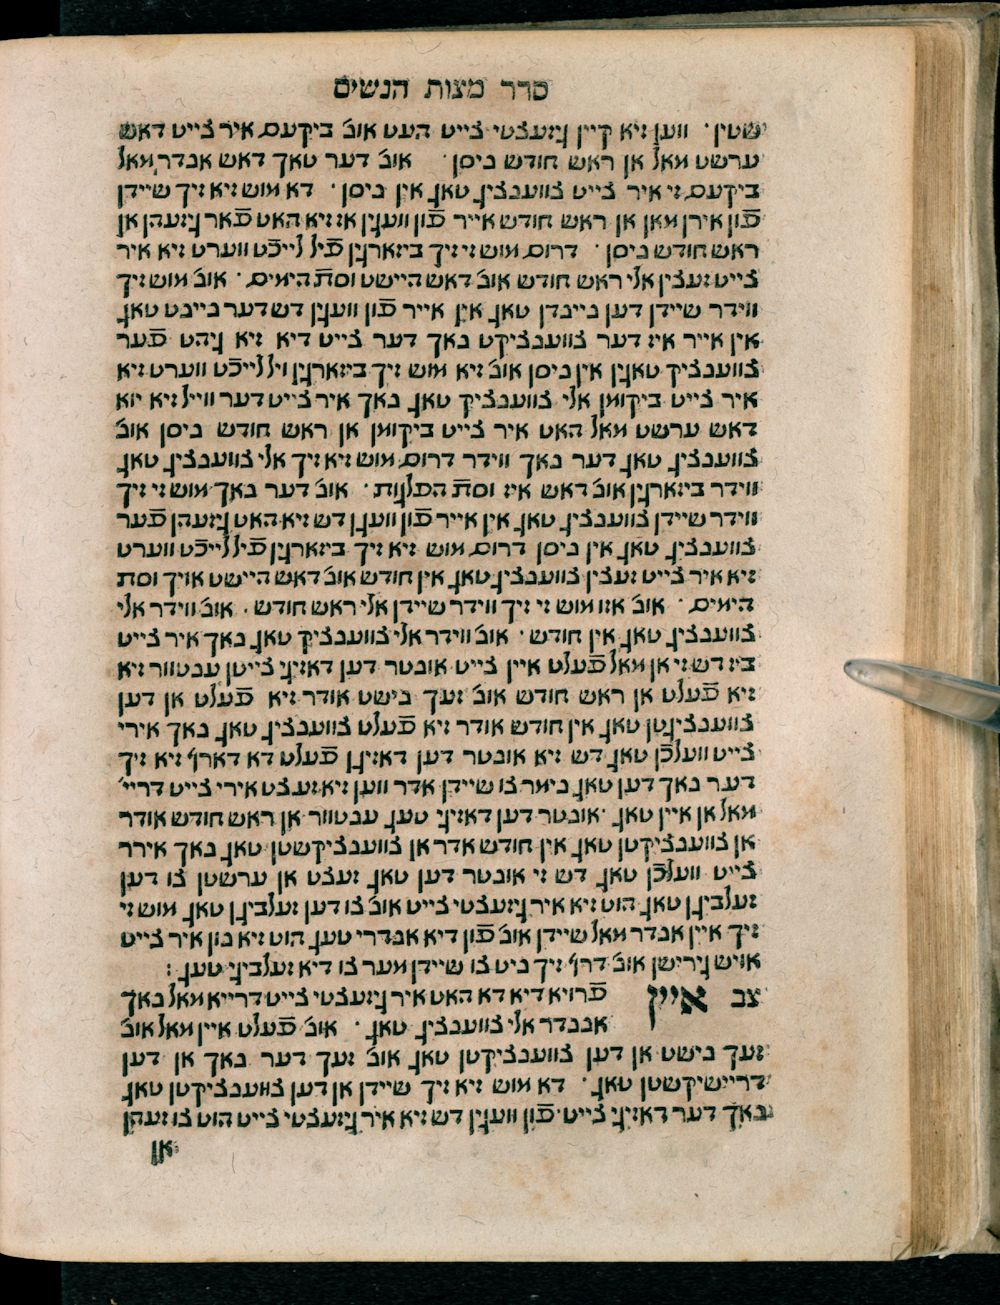 סדר מצות הנשים
שטין · ווען זיא קיין גיזעצטי צייט העט אונ׳ ביקעם איר צייט דאש
ערשט מאל אן ראש חודש ניסן · אונ׳ דער טאך דאש אנדר מאל
ביקעם זי איר צייט צווענציג טאג אין ניסן · דא מוש זיא זיך שיידן
פֿון אירן מאן אן ראש חודש אייר פֿון וועגין אז זיא האט פֿאר גיזעהן אן
ראש חודש ניסן · דרום מוש זי זיך ביזארגין פֿיל לייכֿט ווערט זיא איר
צייט זעצין אלי ראש חודש אונ׳ דאש היישט וסת הימים · אונ׳ מוש זיך
ווידר שיידן דען ניינדן טאג אין אייר פֿון וועגין דש דער ניינט טאג
אין אייר איז דער צווענציקט נאך דער צייט דיא זיא גיהט פֿער
צוועניציק טאגין אין ניסן אונ׳ זיא מוש זיך ביזארגין וילי לייכֿט ווערט זיא
איר צייט ביקומן אלי צוועניציק טאג נאך איר צייט דער ווייל זיא יוא
דאש ערשט מאל האט איר צייט ביקומן אן ראש חודש ניסן אונ׳
צוועניציג טאג דער נאך ווידר דרום מוש זיא זיך אלי צוועניציג טאג
ווידר ביזארגין אונ׳ דאש איז וסת הפלגות · אונ׳ דער נאך מוש זי זיך
ווידר שיידן צוועניציג טאג אין אייר פֿון וועגן דש זיא האט גיזעהן פֿער
צוועניציג טאג אין ניסן דרום מוש זיא זיך ביזארגין פֿיל לייכֿט ווערט
זיא איר צייט זעצין צוועניציג טאג אין חודש אונ׳ דאש היישט אויך וסת
הימים · אונ׳ אזו מוש זי זיך ווידר שיידן אלי ראש חודש · אונ׳ ווידר אלי
צוועניציג טאג אין חודש · אונ׳ ווידר אלי צוועניציק טאג נאך איר צייט
ביז דש זי אן מאל פֿעלט איין צייט אונטר דען דאזיגי צייטן ענטוור זיא
זיא פֿעלט אן ראש חודש אונ׳ זעך נישט אודר זיא פֿעלט אן דען
צוועניציגטן טאג אין חודש אודר זיא פֿעלט צוועניציג טאג נאך אירי
צייט וועלכֿן טאג דש זיא אונטר דען דאזיגן פֿעלט דא דארף זיא זיך
דער נאך דען טאג נימר צו שיידן אדר ווען זיא זעצט אירי צייט דרייי
מאל אן איין טאג · אונטר דען דאזיגי טעג ענטוור אן ראש חודש אודר
אן צוועניציקטן טאג אין חודש אדר אן צוועניציקשטן טאג נאך אירר
צייט וועלכֿן טאג דש זי אונטר דען טאג זעצט אן ערשטן צו דען
זעלביגן טאג הוט זיא איר גיזעצטי צייט אונ׳ צו דען זעלביגן טאג מוש זי
זיך איין אנדר מאל שיידן אונ׳ פֿון דיא אנדרי טעג הוט זיא נון איר צייט
אויש גירישן אונ׳ דרף זיך ניט צו שיידן מער צו דיא זעלביגי טעג :
צב איין פֿרויא דיא דא האט איר גיזעצטי צייט דרייא מאל נאך
אננדר אלי צוועניציג טאג · אונ׳ פֿעלט איין מאל אונ׳
זעך נישט אן דען צוועניציקטן טאג אונ׳ זעך דער נאך אן דען
דריישיקשטן טאג · דא מוש זיא זיך שיידן אן דען צוועניציקטן טאג
נאך דער דאזיגי צייט פֿון וועגין דש זיא איר גיזעצטי צייט הוט צו זעהן
אן